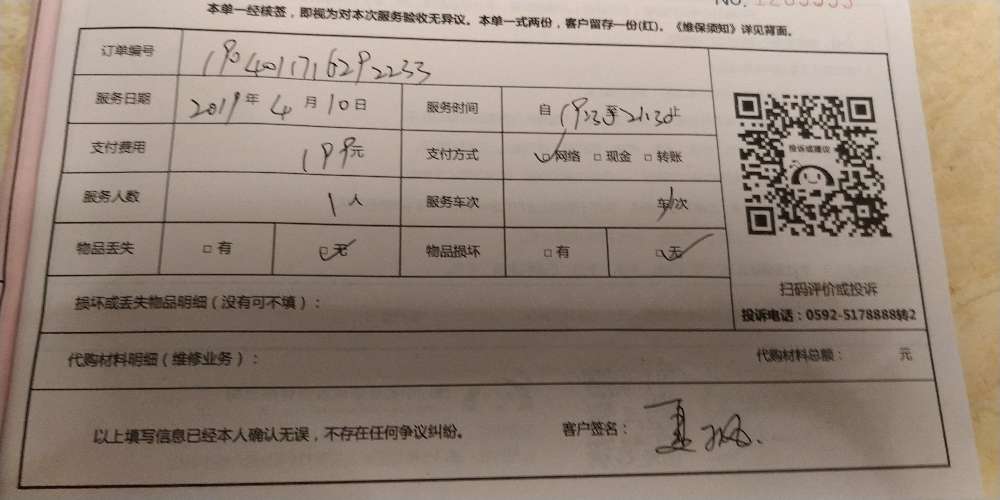 本单一经核签，即视为对本次服务验收无异议。本单一式两份，客户留存一份(红)。《维保须知》详见背面。
订单编号 1904011716292233
服务日期 2019年4月10日 服务时间 自1923至21:30止
支付费用 199元 支付方式 □网络 □现金 □转账
服务人数 1人 服务车次 车次
物品丢失 □有 □无 物品损坏 □有 □无
投诉或建议
损坏或丢失物品明细（没有可不填）：
扫码评价或投诉
投诉电话：0592-5178888转2
代购材料明细（维修业务）： 代购材料总额： 元
以上填写信息已经本人确认无误，不存在任何争议纠纷。 客户签名：